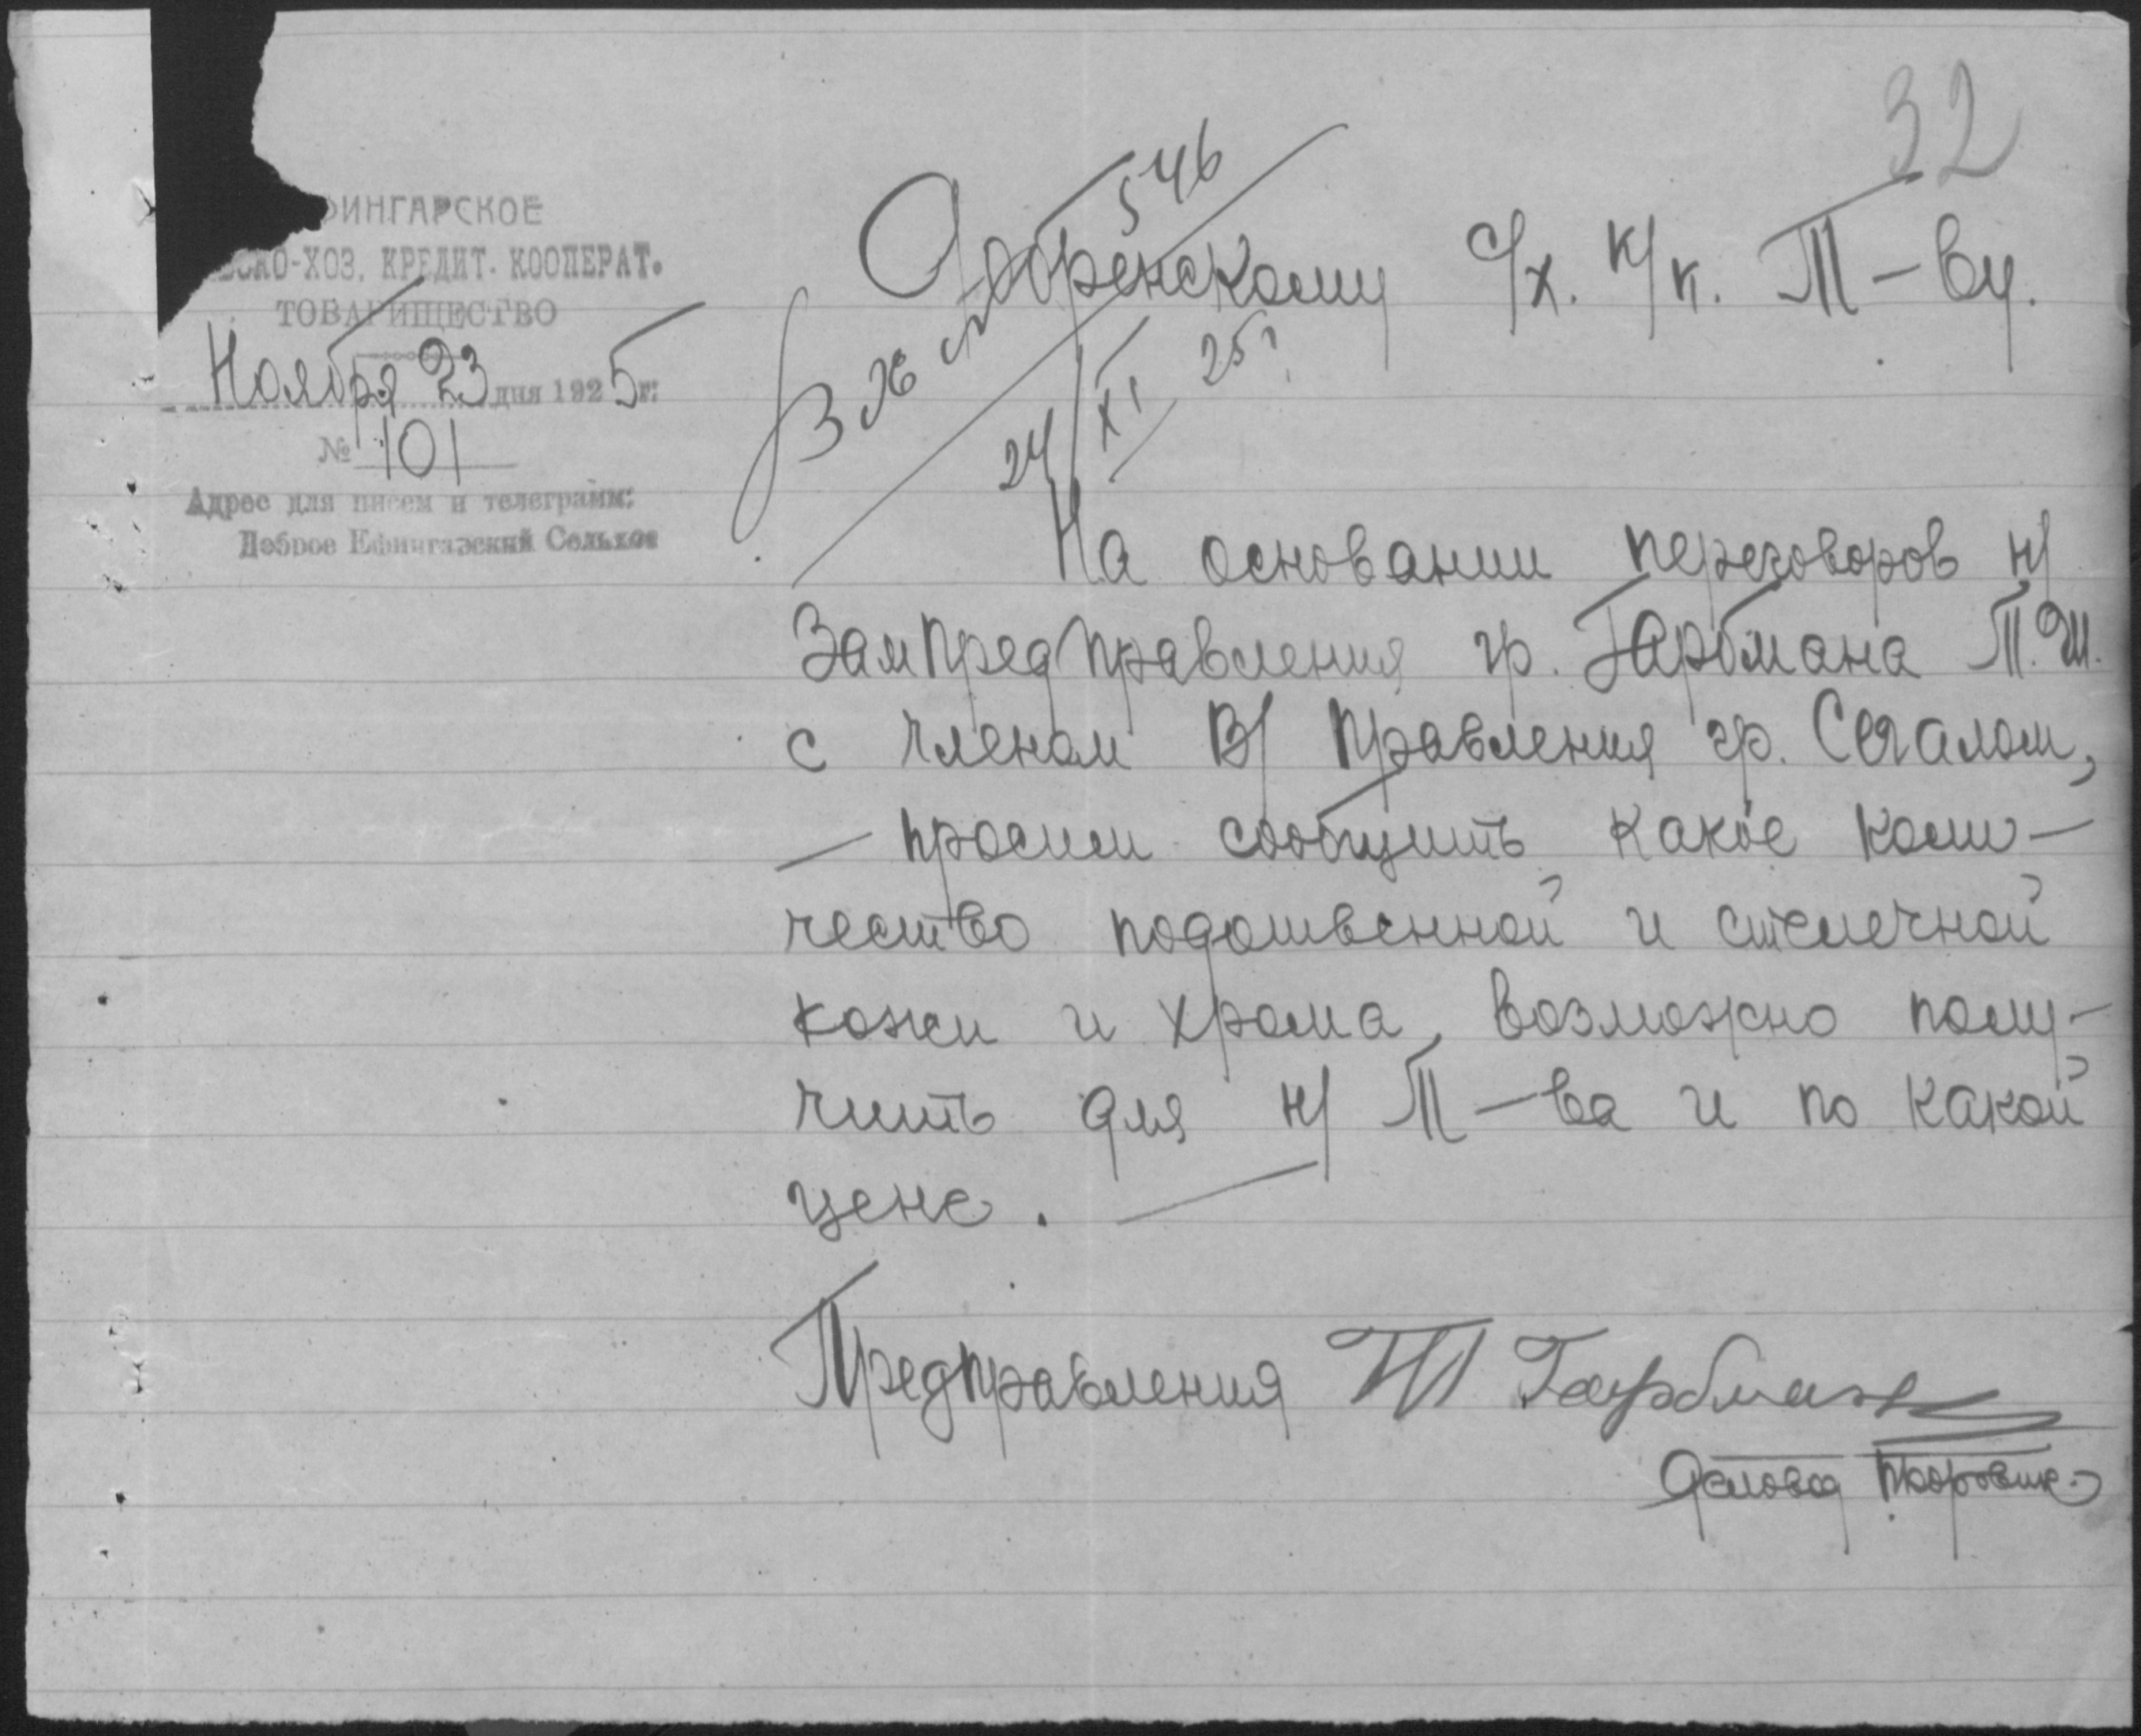 32
ФИНГАРСКОЕ
СКО-ХОЗ. КРЕДИТ. КООПЕРАТ.
ТОВАРИЩЕСТВО
Ноября 23 дня 1925 г.
№ 101
Адрес для писем и телеграмм:
Доброе Ефингарский Сельхоз
546
24/XI 25
Добренскому с/х. к/к. Т-ву.
На основании переговоров н/
Зампредправления гр. Гарбмана Т. Ш.
с членом В/ правления гр. Сегалом,
— просим сообщить какое коли-
чество подошвенной и стелечной
кожи и хрома, возможно полу-
чить для н/ Т-ва и по какой
цене. —
Предправления Гарбман
Деловод